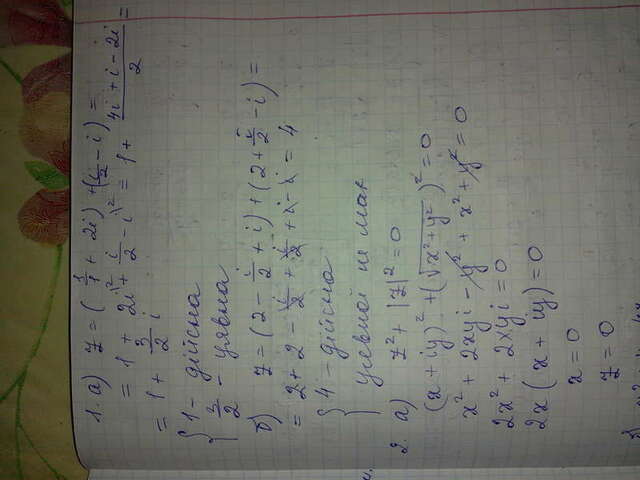 1. а) z = (1/1 + 2i) + (i/2 - i) =
= 1 + 2i + i/2 - i = 1 + (4i + i - 2i)/2 =
= 1 + 3/2 i
{ 1 - дійсна
3/2 - уявна
б) z = (2 - i/2 + i) + (2 + i/2 - i) =
= 2 + 2 - i/2 + i/2 + i - i = 4
{ 4 - дійсна
уявної не має
2. а) z² + |z|² = 0
(x + iy)² + (√x² + y²)² = 0
x² + 2xyi - y² + x² + y² = 0
2x² + 2xyi = 0
2x(x + iy) = 0
x = 0
z = 0